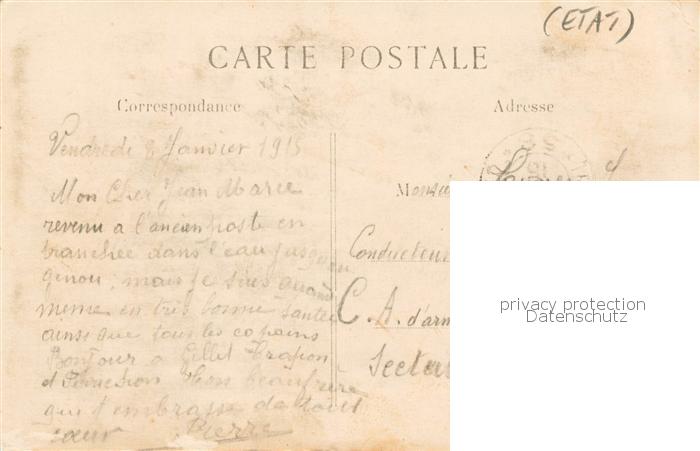 (ETAT)
CARTE POSTALE
Correspondance
Adresse
Vendredi 8 Janvier 1915
Mon Cher Jean Marie
revenu a l'ancien poste en
tranchée dans l'eau jusqu'au
genou, mais je suis quand
meme en tres bonne santée
ainsi que tous les copains
Bonjour a Gillet Trapon
et Ton beaufrère
qui t'embrasse de tout
cœur Pierre
Monsie
Conducteur
C. A. d'arm
Secteu
privacy protection
Datenschutz